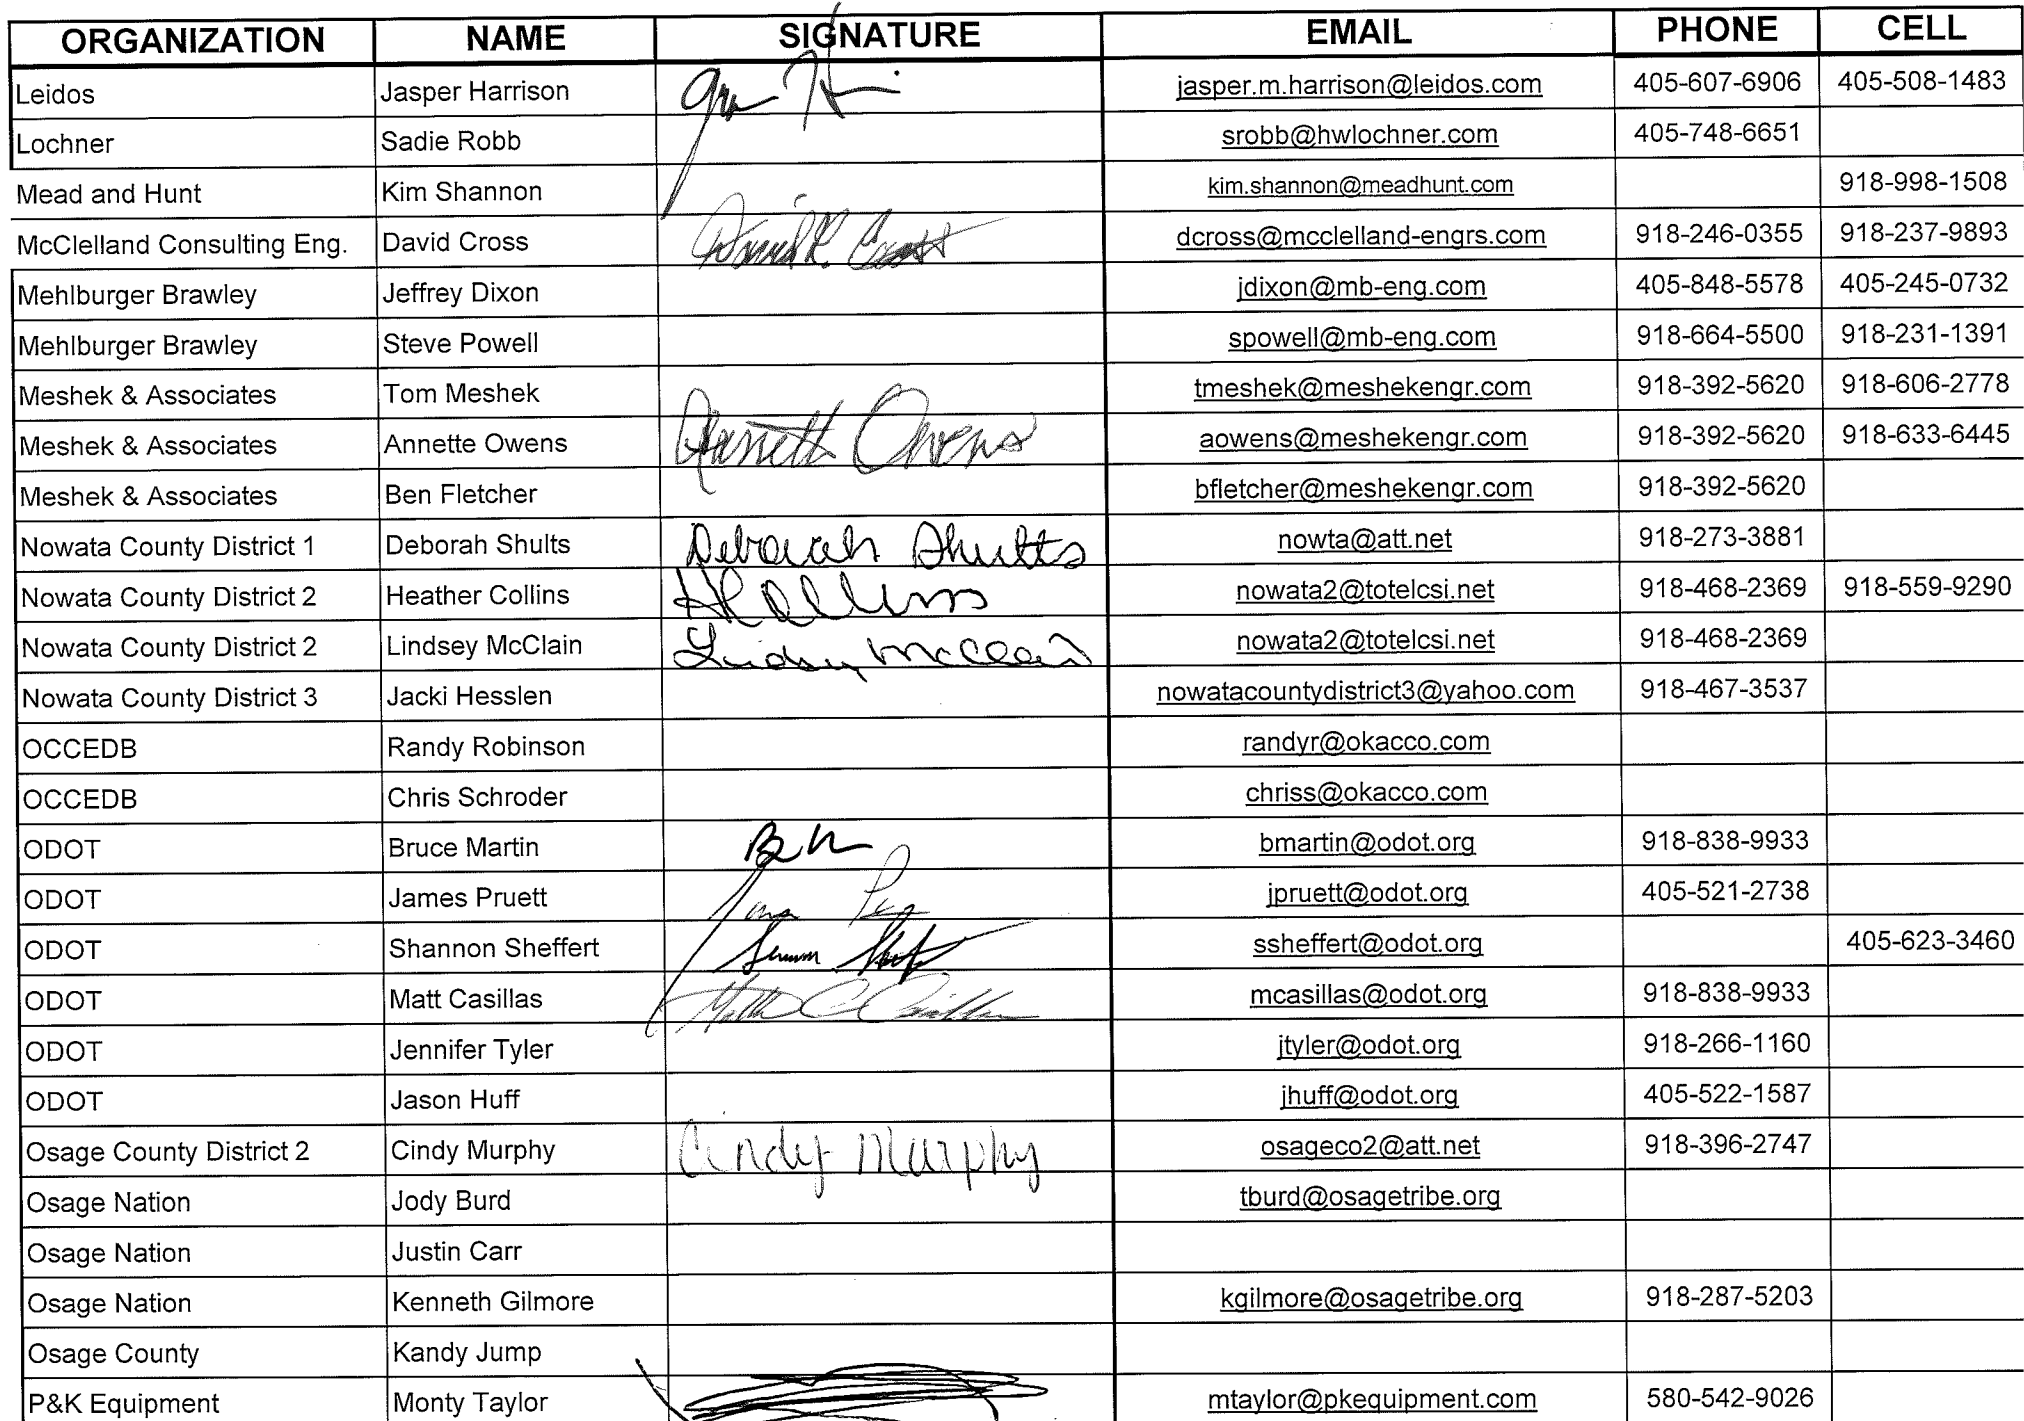 ORGANIZATION NAME SIGNATURE EMAIL PHONE CELL
Leidos Jasper Harrison jasper.m.harrison@leidos.com 405-607-6906 405-508-1483
Lochner Sadie Robb srobb@hwlochner.com 405-748-6651
Mead and Hunt Kim Shannon kim.shannon@meadhunt.com 918-998-1508
McClelland Consulting Eng. David Cross David R. Cross dcross@mcclelland-engrs.com 918-246-0355 918-237-9893
Mehlburger Brawley Jeffrey Dixon jdixon@mb-eng.com 405-848-5578 405-245-0732
Mehlburger Brawley Steve Powell spowell@mb-eng.com 918-664-5500 918-231-1391
Meshek & Associates Tom Meshek tmeshek@meshekengr.com 918-392-5620 918-606-2778
Meshek & Associates Annette Owens Annette Owens aowens@meshekengr.com 918-392-5620 918-633-6445
Meshek & Associates Ben Fletcher bfletcher@meshekengr.com 918-392-5620
Nowata County District 1 Deborah Shults Deborah Shults nowta@att.net 918-273-3881
Nowata County District 2 Heather Collins HCollins nowata2@totelcsi.net 918-468-2369 918-559-9290
Nowata County District 2 Lindsey McClain Lindsey McClain nowata2@totelcsi.net 918-468-2369
Nowata County District 3 Jacki Hesslen nowatacountydistrict3@yahoo.com 918-467-3537
OCCEDB Randy Robinson randyr@okacco.com
OCCEDB Chris Schroder chriss@okacco.com
ODOT Bruce Martin bmartin@odot.org 918-838-9933
ODOT James Pruett jpruett@odot.org 405-521-2738
ODOT Shannon Sheffert ssheffert@odot.org 405-623-3460
ODOT Matt Casillas Matthew C Casillas mcasillas@odot.org 918-838-9933
ODOT Jennifer Tyler jtyler@odot.org 918-266-1160
ODOT Jason Huff jhuff@odot.org 405-522-1587
Osage County District 2 Cindy Murphy Cindy Murphy osageco2@att.net 918-396-2747
Osage Nation Jody Burd tburd@osagetribe.org
Osage Nation Justin Carr
Osage Nation Kenneth Gilmore kgilmore@osagetribe.org 918-287-5203
Osage County Kandy Jump
P&K Equipment Monty Taylor mtaylor@pkequipment.com 580-542-9026